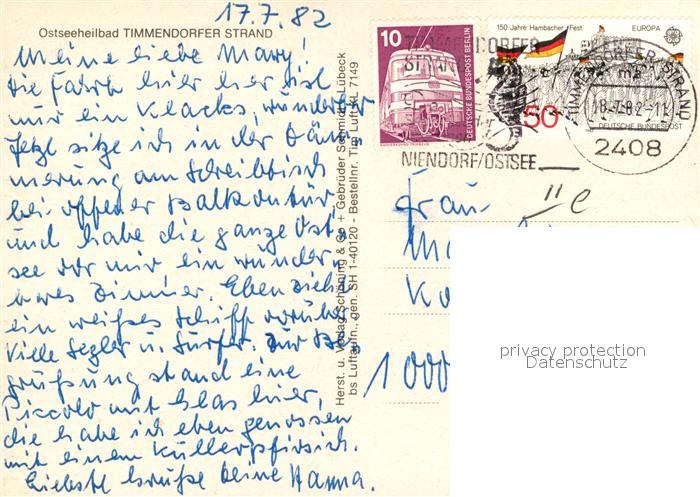 17.7.82
Ostseeheilbad TIMMENDORFER STRAND
Meine liebe Mary!
Die Fahrt hier her ist
nur ein Klacks, wunderbar
Jetzt sitze ich in der Däm
merung am Schreibtisch
bei offener Balkontür
und habe die ganze Ost
see vor mir ein wunder
bares Zimmer. Eben ziehe
ein weißes Schiff vorüber
viele Segler u. Surfer. Zur Be
grüßung stand eine
Piccolo mit Glas hier,
die habe ich eben genossen
mit einem Kullerpfirsich.
Liebste Grüße Deine Hanna.
Herst. u. Verlag Schöning & Co + Gebrüder Schmidt, Lübeck
bs Luftaufn., gen. SH 1-40120 - Bestellnr. Tim Luft SKL 7149
10
DEUTSCHE BUNDESPOST BERLIN
150 Jahre Hambacher Fest
EUROPA
50
TIMMENDORFER
STRAND
NIENDORF/OSTSEE
TIMMENDORFER STRAND
ma
18.-7.82-11
DEUTSCHE BUNDESPOST
2408
Frau
II e
1000
privacy protection
Datenschutz